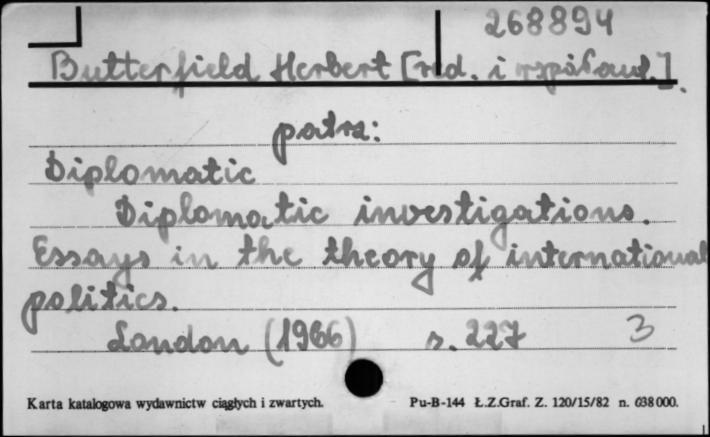 268894
Butterfield Herbert [red. i współaut.].
patrz:
Diplomatic
Diplomatic investigations.
Essays in the theory of international
politics.
London (1966) s. 227 3
Karta katalogowa wydawnictw ciągłych i zwartych. Pu-B-144 Ł.Z.Graf. Z. 120/15/82 n. 638000.